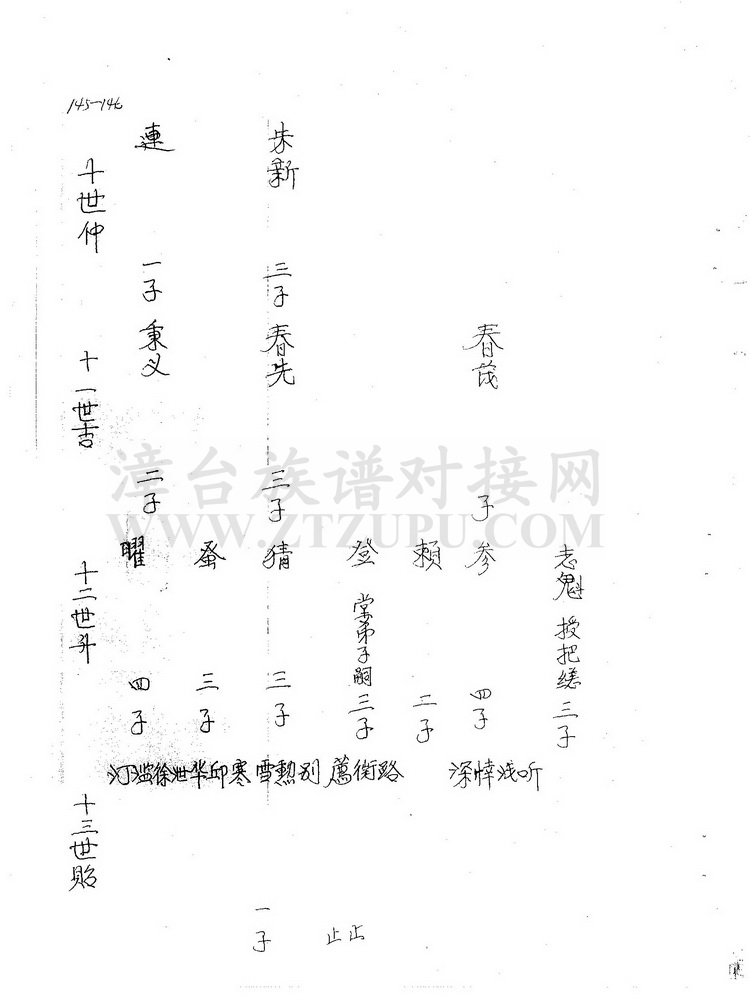 145-146
十世仲
連
一子
朱新
三子
十一世吉
秉义
二子
春先
三子
春茂
子
漳台族谱对接网
WWW.ZTZUPU.COM
十二世升
曜
四子
蚤
三子
猜
三子
登
棠弟子嗣三子
賴
二子
参
四子
志魁 授把總 三子
十三世貽
汀滋徐泄华邱寒雪勲别 薦衡路 深悻浅听
一子
止止